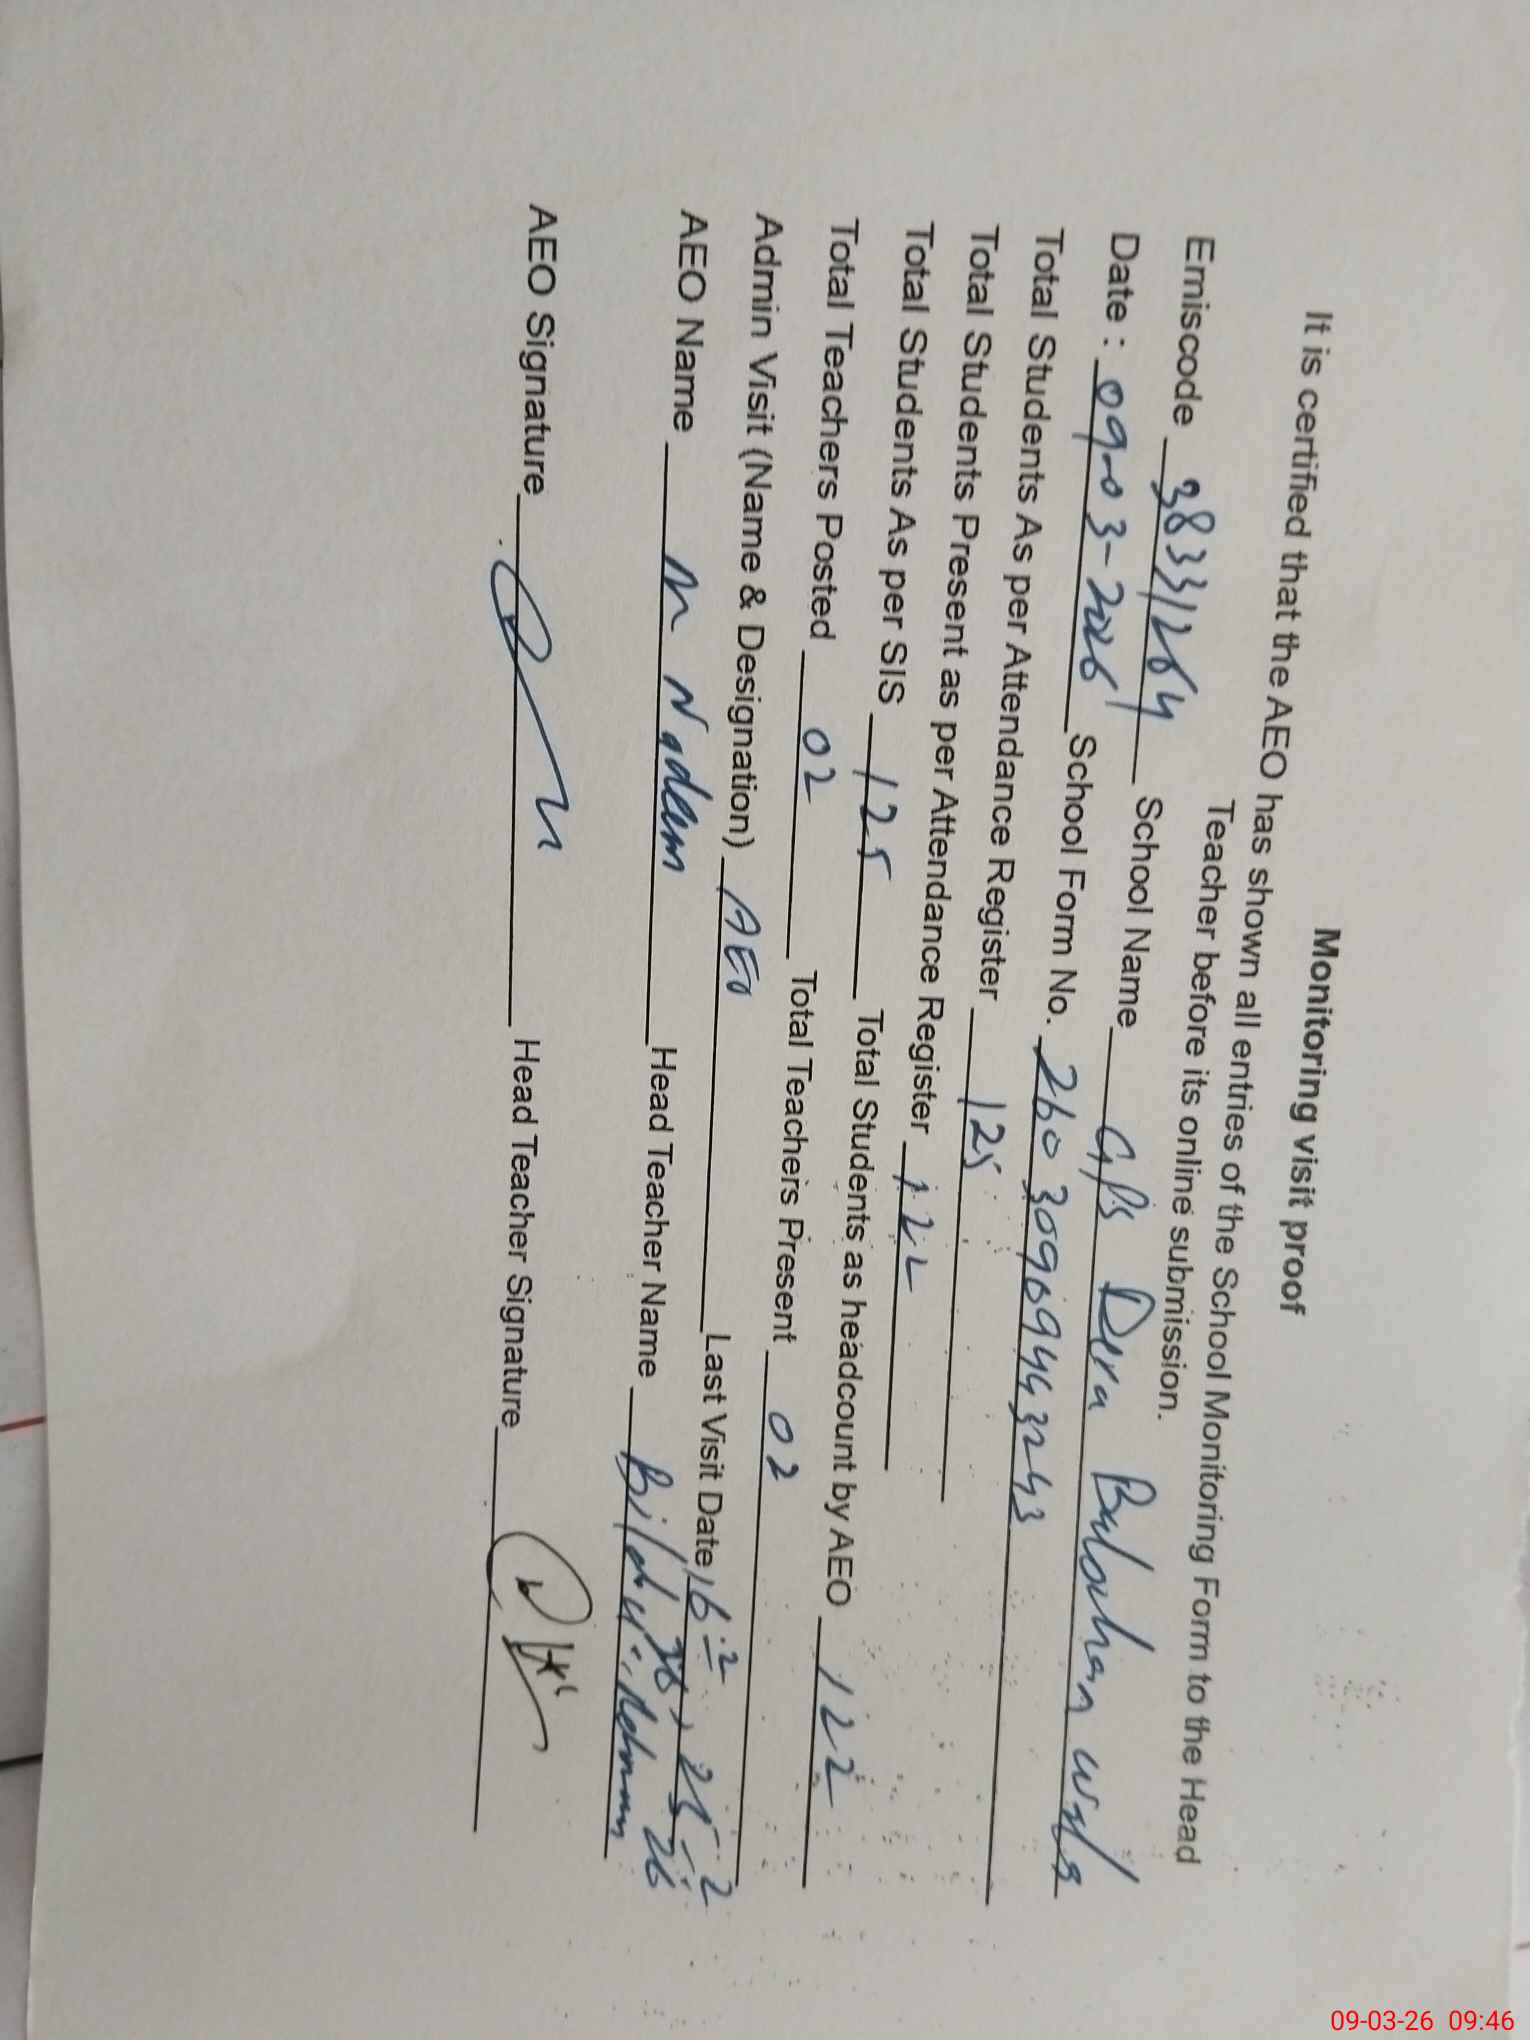 Monitoring visit proof
It is certified that the AEO has shown all entries of the School Monitoring Form to the Head
Teacher before its online submission.
Emiscode 38331264 School Name GPS Dera Balochan wala
Date : 09-03-2026 School Form No. 26030909443243
Total Students As per Attendance Register 125
Total Students Present as per Attendance Register 122
Total Students As per SIS 125 Total Students as headcount by AEO 122
Total Teachers Posted 02 Total Teachers Present 02
Admin Visit (Name & Designation) AEO Last Visit Date
AEO Name M Nadeem Head Teacher Name
AEO Signature Head Teacher Signature
09-03-26 09:46